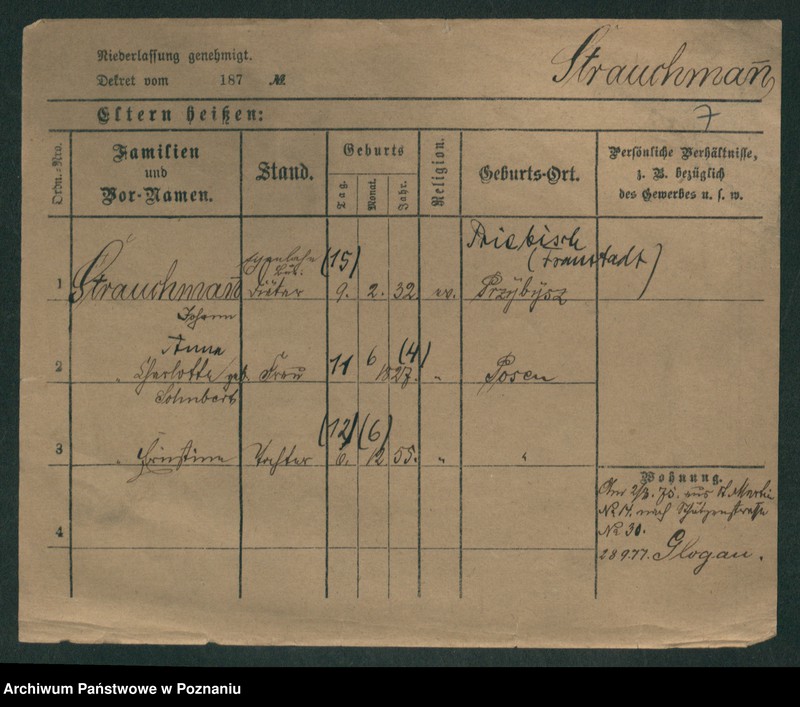 Niederlassung genehmigt.
Dekret vom 187 №
Strauchman̄
7
Eltern heißen:
Ordn.-Nro.
Familien
und
Vor-Namen.
Stand.
Geburts
Tag.
Monat.
Jahr.
Religion.
Geburts-Ort.
Persönliche Verhältnisse,
z. B. bezüglich
des Gewerbes u. s. w.
1 Strauchman̄ Diätar 9. 2. 32. ev.
Johann
(15)
Priebisch
(Fraustadt)
Przybysz
Anna
2 " Charlotte geb Frau 11 6 1827. (4) " Posen
3 " Ernestine Tochter 6. 12 55. " "
(12) (6)
4
Wohnung.
Am 2/3. 75. aus St. Martin
No 14. nach Schützenstraße
No 30.
28 9 77. Glogau.
Archiwum Państwowe w Poznaniu